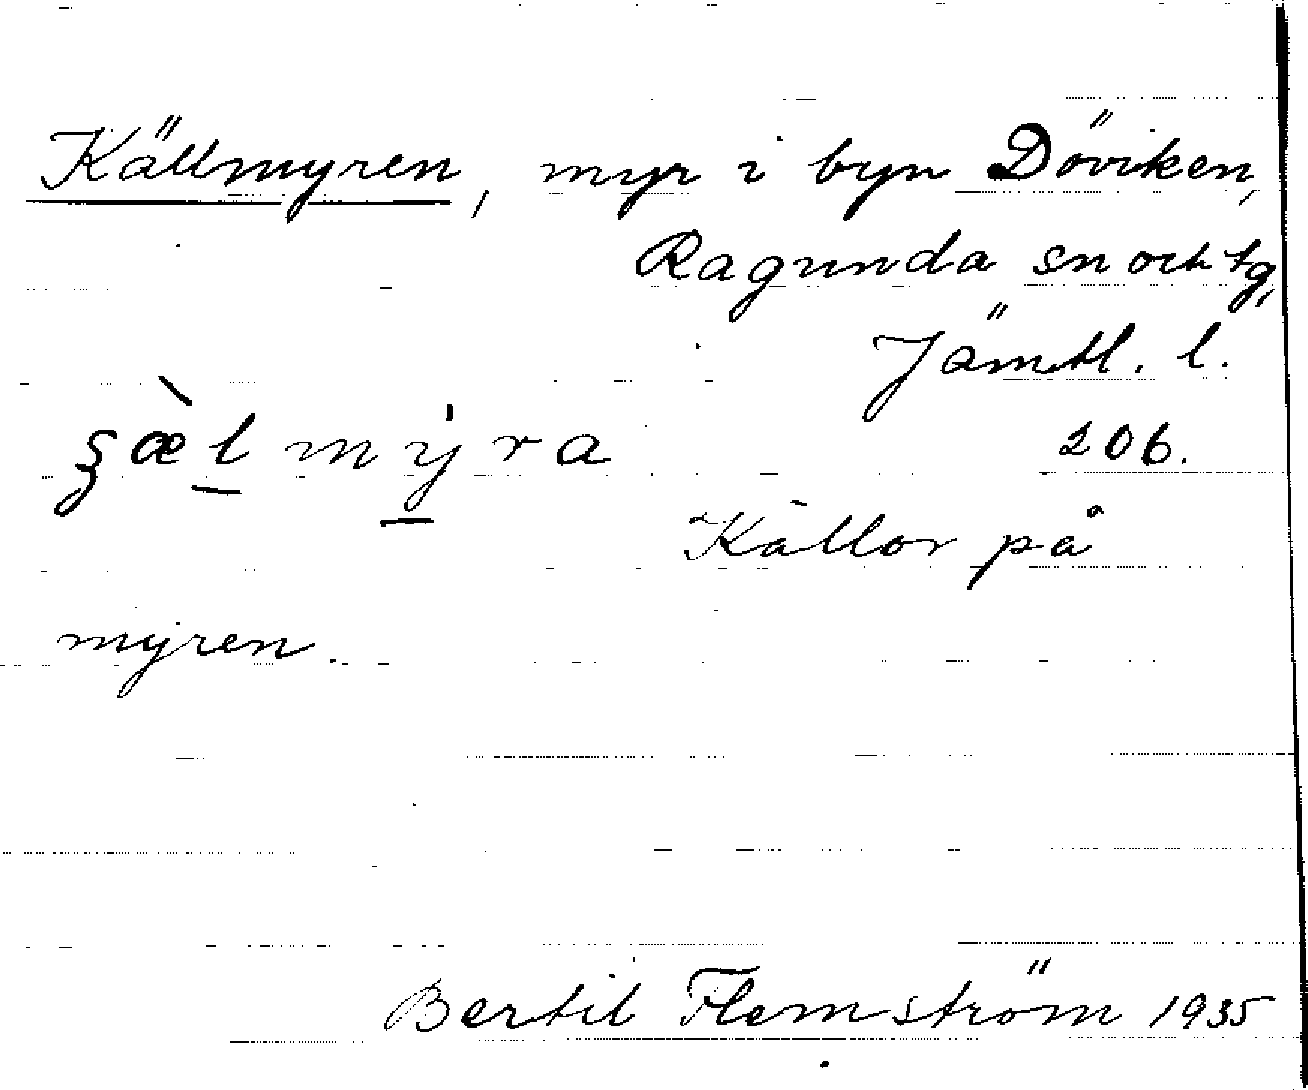 Källmyren, myr i byn Döviken,
Ragunda sn och tg,
Jämtl. l.
206.
ʒæ̀l mýra
Källor på
myren.
Bertil Flemström 1935